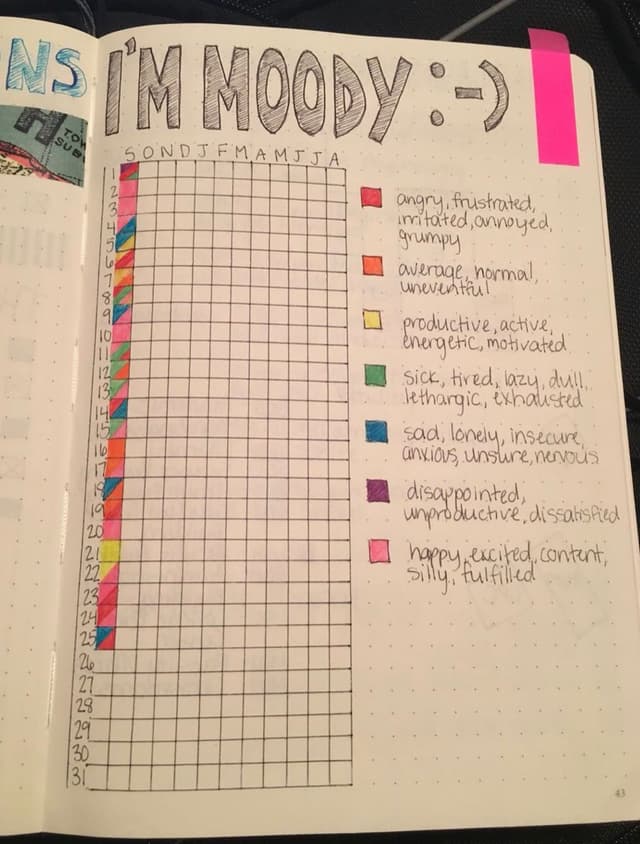 NS
TOW
SUB
I'M MOODY :-)
S O N D J F M A M J J A
1
2
3
4
5
6
7
8
9
10
11
12
13
14
15
16
17
18
19
20
21
22
23
24
25
26
27
28
29
30
31
angry, frustrated,
irritated, annoyed,
grumpy
average, normal,
uneventful
productive, active,
energetic, motivated
sick, tired, lazy, dull,
lethargic, exhausted
sad, lonely, insecure,
anxious, unsure, nervous
disappointed,
unproductive, dissatisfied
happy, excited, content,
silly, fulfilled
43